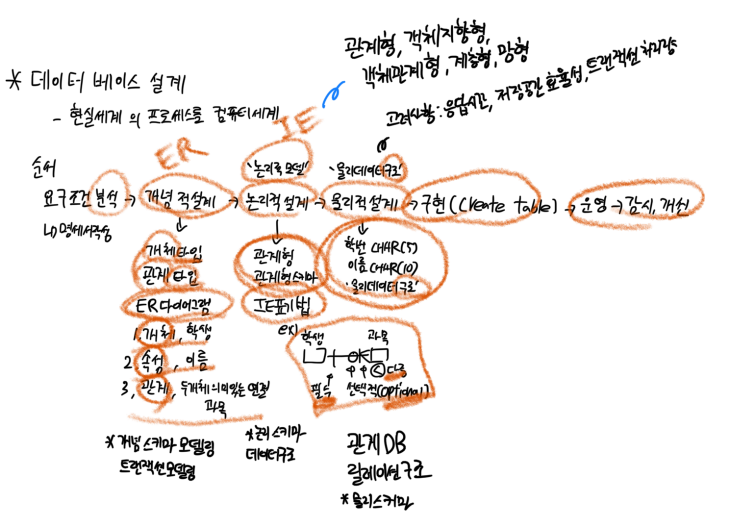 관계형, 객체지향형,
객체관계형, 계층형, 망형
* 데이터 베이스 설계
- 현실세계의 프로세스를 컴퓨터세계
IE
고려사항: 응답시간, 저장공간 효율성, 트랜잭션 처리량
ER
순서
'논리적 모델'
'물리데이터구조'
요구조건 분석 → 개념적설계 → 논리적설계 → 물리적설계 → 구현 (Create table) → 운영 → 감시, 개선
↳ 명세서작성
개체타입
관계타입
ER다이어그램
1. 개체, 학생
2. 속성, 이름
3, 관계, 두개체의 의미있는 연결
과목
* 개념스키마 모델링
트랜잭션모델링
관계형
관계형스키마
IE표기법
ex)
* 논리스키마
데이터구조
학번 CHAR(5)
이름 CHAR(10)
'물리데이터구조'
학생 과목
필수 선택적(optional)
< 다중
관계DB
릴레이션구조
* 물리스키마